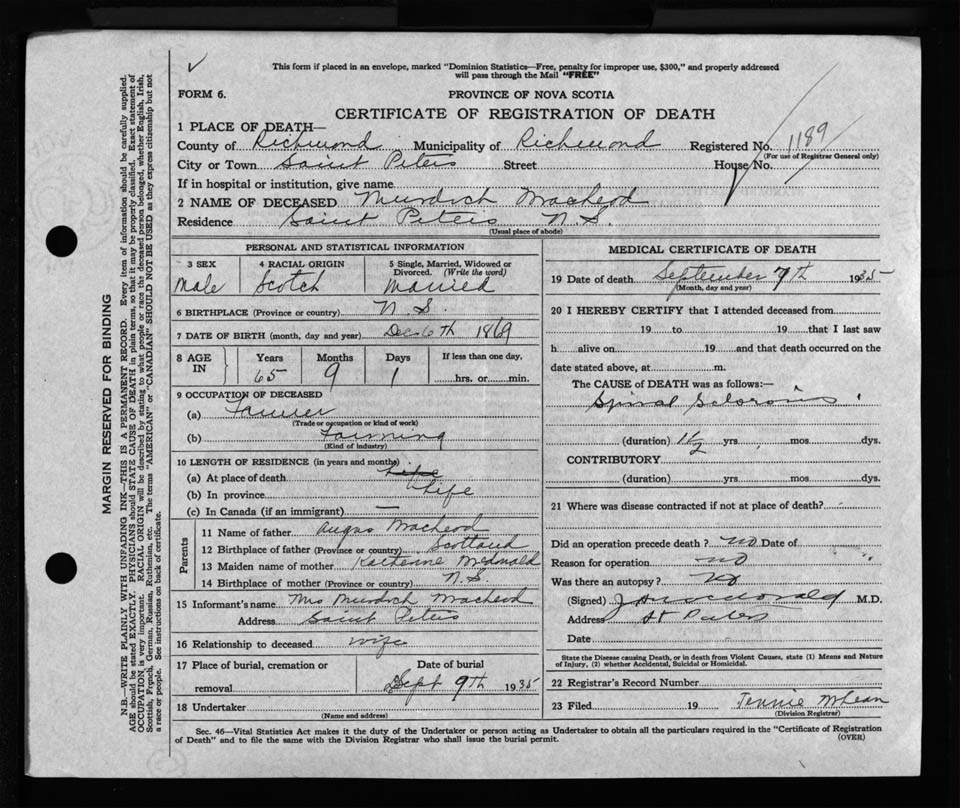 This form if placed in an envelope, marked "Dominion Statistics—Free, penalty for improper use, $300," and properly addressed
will pass through the Mail "FREE"
FORM 6.
PROVINCE OF NOVA SCOTIA
CERTIFICATE OF REGISTRATION OF DEATH
1 PLACE OF DEATH—
County of Richmond Municipality of Richmond Registered No. 1189
(For use of Registrar General only)
City or Town Saint Peters Street House No.
If in hospital or institution, give name
2 NAME OF DECEASED Murdoch Macleod
Residence Saint Peters N.S.
(Usual place of abode)
PERSONAL AND STATISTICAL INFORMATION
3 SEX 4 RACIAL ORIGIN 5 Single, Married, Widowed or Divorced. (Write the word)
Male Scotch Married
6 BIRTHPLACE (Province or country) N.S.
7 DATE OF BIRTH (month, day and year) Dec 6th 1869
8 AGE IN Years Months Days If less than one day,
65 9 1 hrs. or min.
9 OCCUPATION OF DECEASED
(a) Farmer
(Trade or occupation or kind of work)
(b) Farming
(Kind of industry)
10 LENGTH OF RESIDENCE (in years and months)
(a) At place of death Life
(b) In province Life
(c) In Canada (if an immigrant) —
Parents
11 Name of father Angus Macleod
12 Birthplace of father (Province or country) Scotland
13 Maiden name of mother Katherine McDonald
14 Birthplace of mother (Province or country) N.S.
15 Informant's name Mrs Murdoch Macleod
Address Saint Peters
16 Relationship to deceased wife
17 Place of burial, cremation or removal Date of burial
Sept 9th 1935
18 Undertaker
(Name and address)
MEDICAL CERTIFICATE OF DEATH
19 Date of death September 7th 1935
(Month, day and year)
20 I HEREBY CERTIFY that I attended deceased from
19 to 19 that I last saw
h alive on 19 and that death occurred on the
date stated above, at m.
The CAUSE of DEATH was as follows:—
Spinal Sclerosis
(duration) 1½ yrs. mos. dys.
CONTRIBUTORY
(duration) yrs. mos. dys.
21 Where was disease contracted if not at place of death?
Did an operation precede death? no Date of
Reason for operation no
Was there an autopsy? no
(Signed) M.D.
Address St Peters
Date
State the Disease causing Death, or in death from Violent Causes, state (1) Means and Nature
of Injury, (2) whether Accidental, Suicidal or Homicidal.
22 Registrar's Record Number
23 Filed 19 Jennie McLean
(Division Registrar)
Sec. 46—Vital Statistics Act makes it the duty of the Undertaker or person acting as Undertaker to obtain all the particulars required in the "Certificate of Registration
of Death" and to file the same with the Division Registrar who shall issue the burial permit.
(OVER)
MARGIN RESERVED FOR BINDING
N.B.—WRITE PLAINLY WITH UNFADING INK—THIS IS A PERMANENT RECORD. Every item of information should be carefully supplied.
AGE should be stated EXACTLY. PHYSICIANS should STATE CAUSE OF DEATH in plain terms, so that it may be properly classified. Exact statement of
OCCUPATION is very important. RACIAL ORIGIN will be described by stating to what people or race the deceased person belonged, whether English, Irish,
Scottish, French, German, Russian, Ruthenian, etc. The terms "AMERICAN" or "CANADIAN" SHOULD NOT BE USED as they express citizenship but not
a race or people. See instructions on back of certificate.